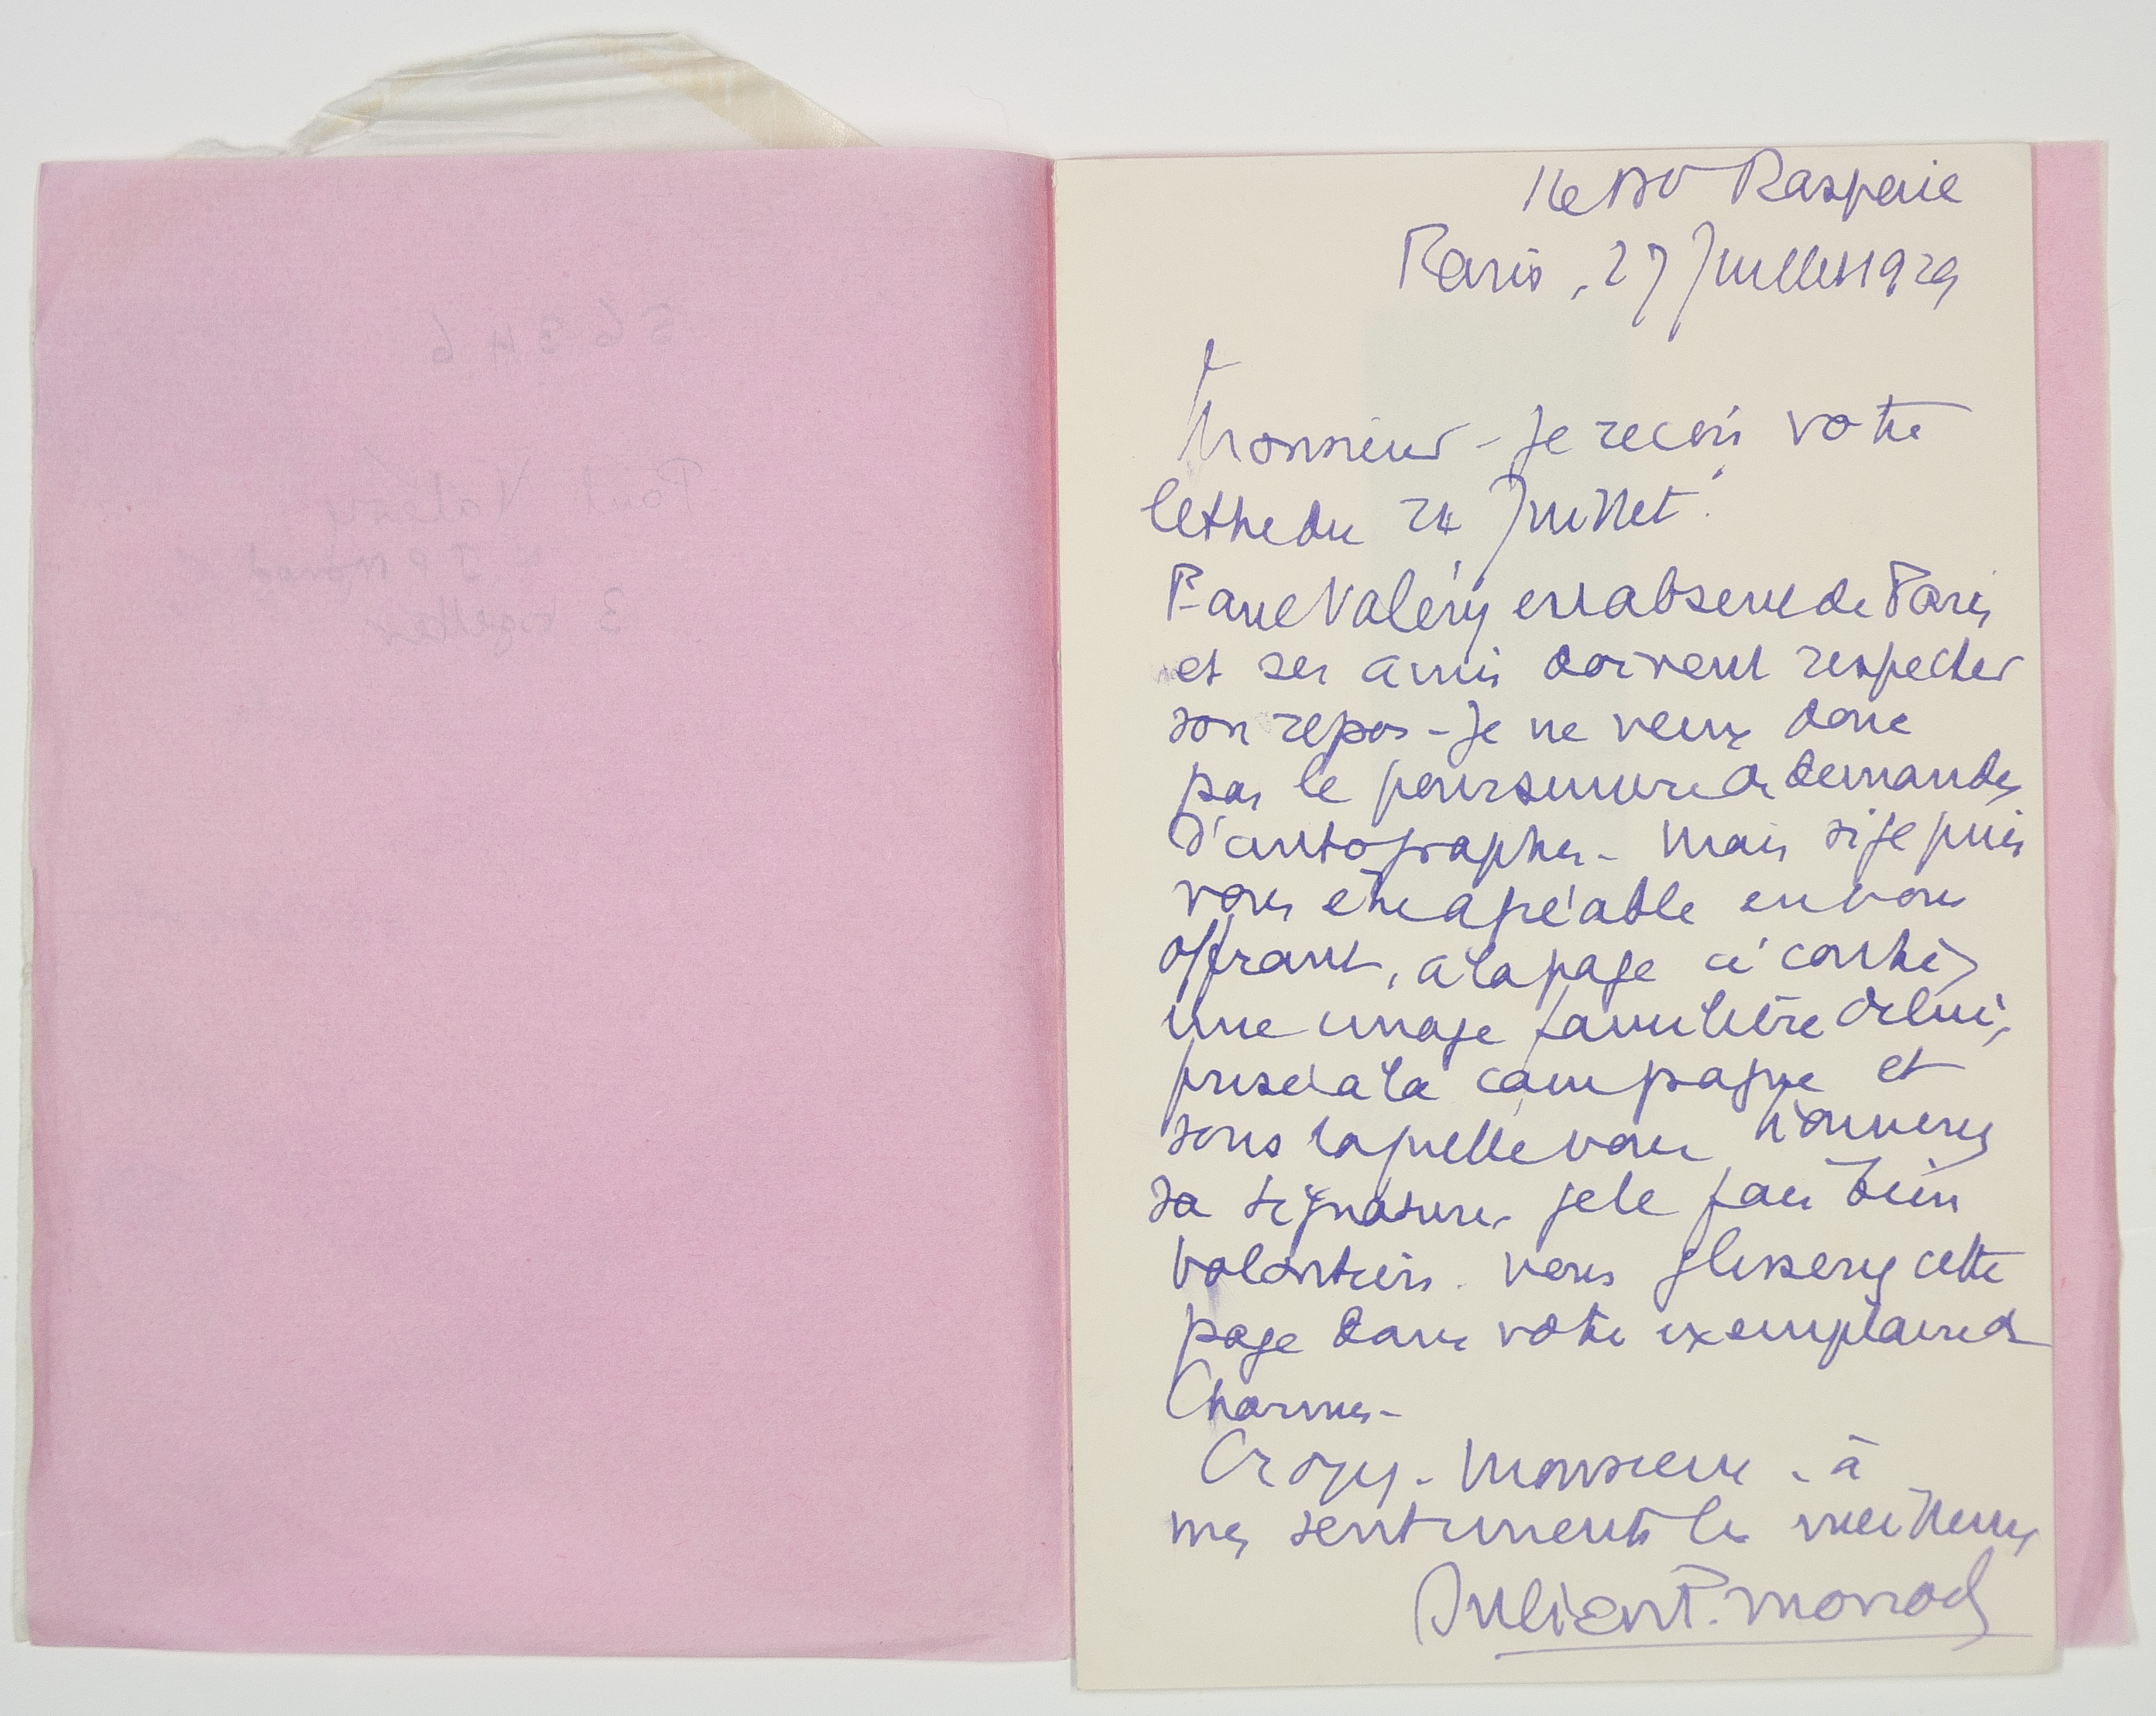 56346
Paul Valéry
J P Monod
3 together
16 Bd Raspail
Paris, 27 Juillet 1929
Monsieur - Je reçois votre
lettre du 24 Juillet.
Paul Valéry est absent de Paris
et ses amis doivent respecter
son repos - Je ne veux donc
pas le poursuivre de demandes
d'autographes - Mais si je puis
vous être agréable en vous
offrant, à la page ci contre,
une image familière de lui,
prise à la campagne et
sous laquelle vous trouverez
sa signature, je le fais bien
volontiers. Vous glisserez cette
page dans votre exemplaire de
Charmes -
Croyez - Monsieur - à
mes sentiments les meilleurs
Julien P. Monod